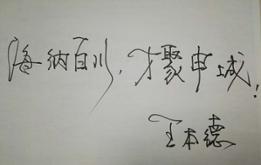 海纳百川，才聚申城！
王本德